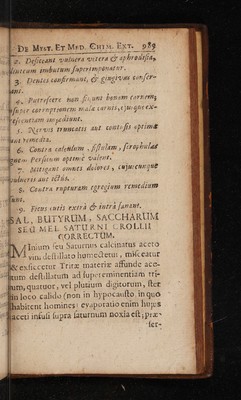 DE MYST. ET MED. CHIM. EXT. 989
2. Desiccant vulnera vetera & aphrodisia,
linteum imbutum superimponatur.
3. Dentes confirmant, & gingivas conser-
ant.
4. Putrefieri non sinunt bonam carnem,
super corruptionem malæ carnis, ejusque ex-
crescentiam impediunt.
5. Nervis truncatis aut contusis optimè
aut remedia.
6. Contra calendum, fistulam, scrophulas
Persicum optimè valent.
7. Mitigant omnes dolores, cujuscunque
vulneris aut ictûs.
8. Contra rupturam egregium remedium
unt.
9. Ficus cutis extrà & intrà sanant.
SAL, BUTYRUM, SACCHARUM
SEU MEL SATURNI CROLLII
CORRECTUM.
Minium seu Saturnus calcinatus aceto
vini destillato humectetur, misceatur
& exsiccetur Tritæ materiæ affunde ace-
tum destillatum ad supereminentiam tri-
um, quatuor, vel plurium digitorum, ster
in loco calido (non in hypocausto, in quo
habitent homines: evaporatio enim hujus
aceti infusi supra saturnum noxia est; præ-
ser-